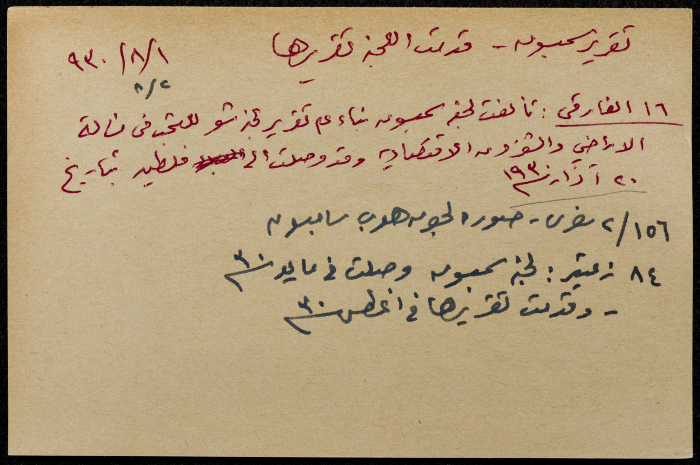 تقرير سمبسون - قدمت اللجنة تقريرها ٩٣٠/٨/١
٨/٢
١٦ الفارقي : تألفت لجنة سمبسون بناء على تقرير لجنة شو للبحث في مسألة
الاراضي والشؤون الاقتصادية وقد وصلت الى فلسطين بتاريخ
٢٠ آذار سنة ١٩٣٠
٢/١٥٦ - صورة لجون هوب سامبسون
٨٤ زعيتر : لجنة سمبسون وصلت في مايو سنة ٣٠
- وقدمت تقريرها في اغسطس سنة ٣٠